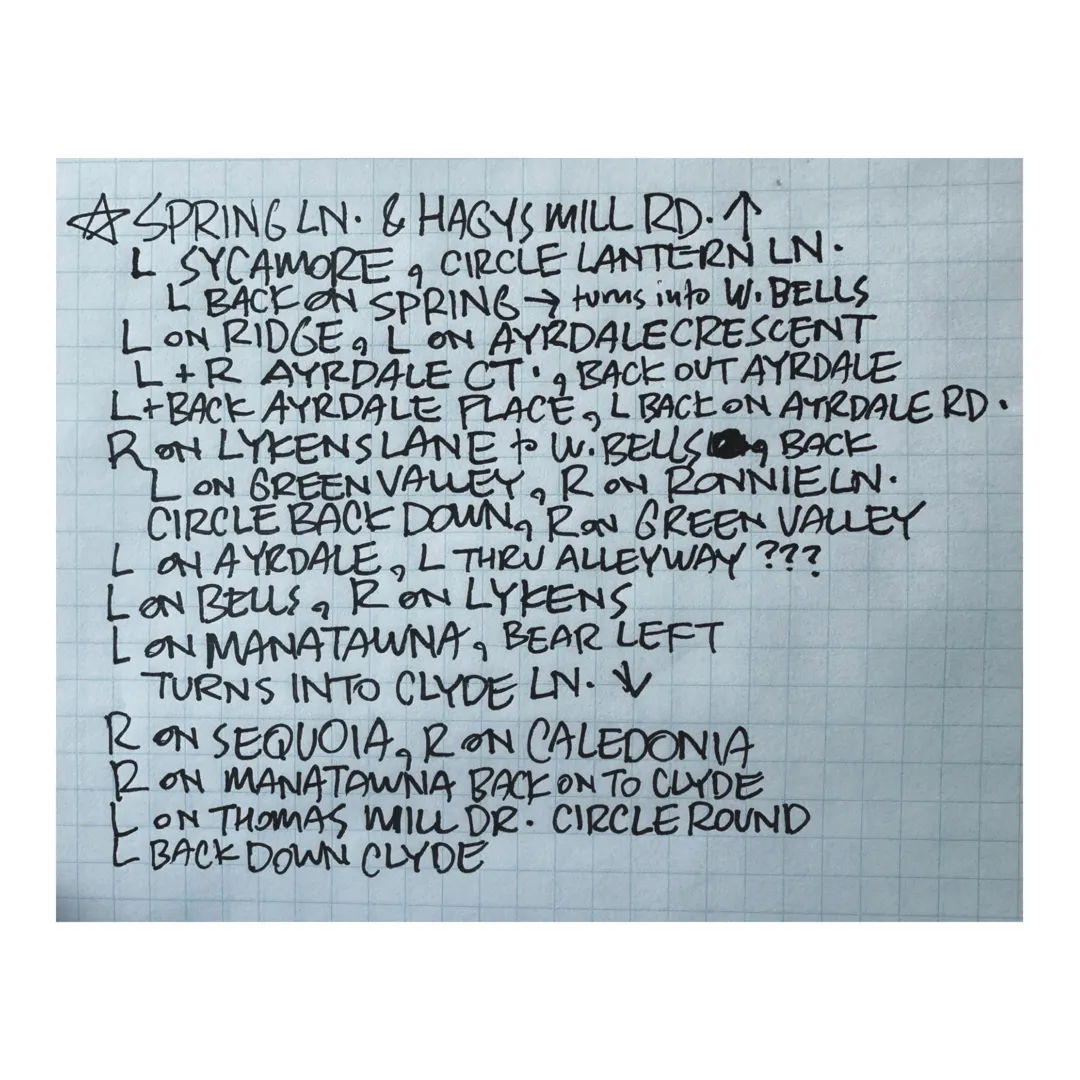 ☆ SPRING LN. & HAGYS MILL RD. ↑
L SYCAMORE, CIRCLE LANTERN LN.
L BACK ON SPRING → turns into W. BELLS
L ON RIDGE, L ON AYRDALECRESCENT
L + R AYRDALE CT., BACK OUT AYRDALE
L + BACK AYRDALE PLACE, L BACK ON AYRDALE RD.
R ON LYKENS LANE to W. BELLS, BACK
L ON GREEN VALLEY, R ON RONNIE LN.
CIRCLE BACK DOWN, R ON GREEN VALLEY
L ON AYRDALE, L THRU ALLEYWAY ???
L ON BELLS, R ON LYKENS
L ON MANATAWNA, BEAR LEFT
TURNS INTO CLYDE LN. ↓
R ON SEQUOIA, R ON CALEDONIA
R ON MANATAWNA BACK ON TO CLYDE
L ON THOMAS MILL DR. CIRCLE ROUND
L BACK DOWN CLYDE